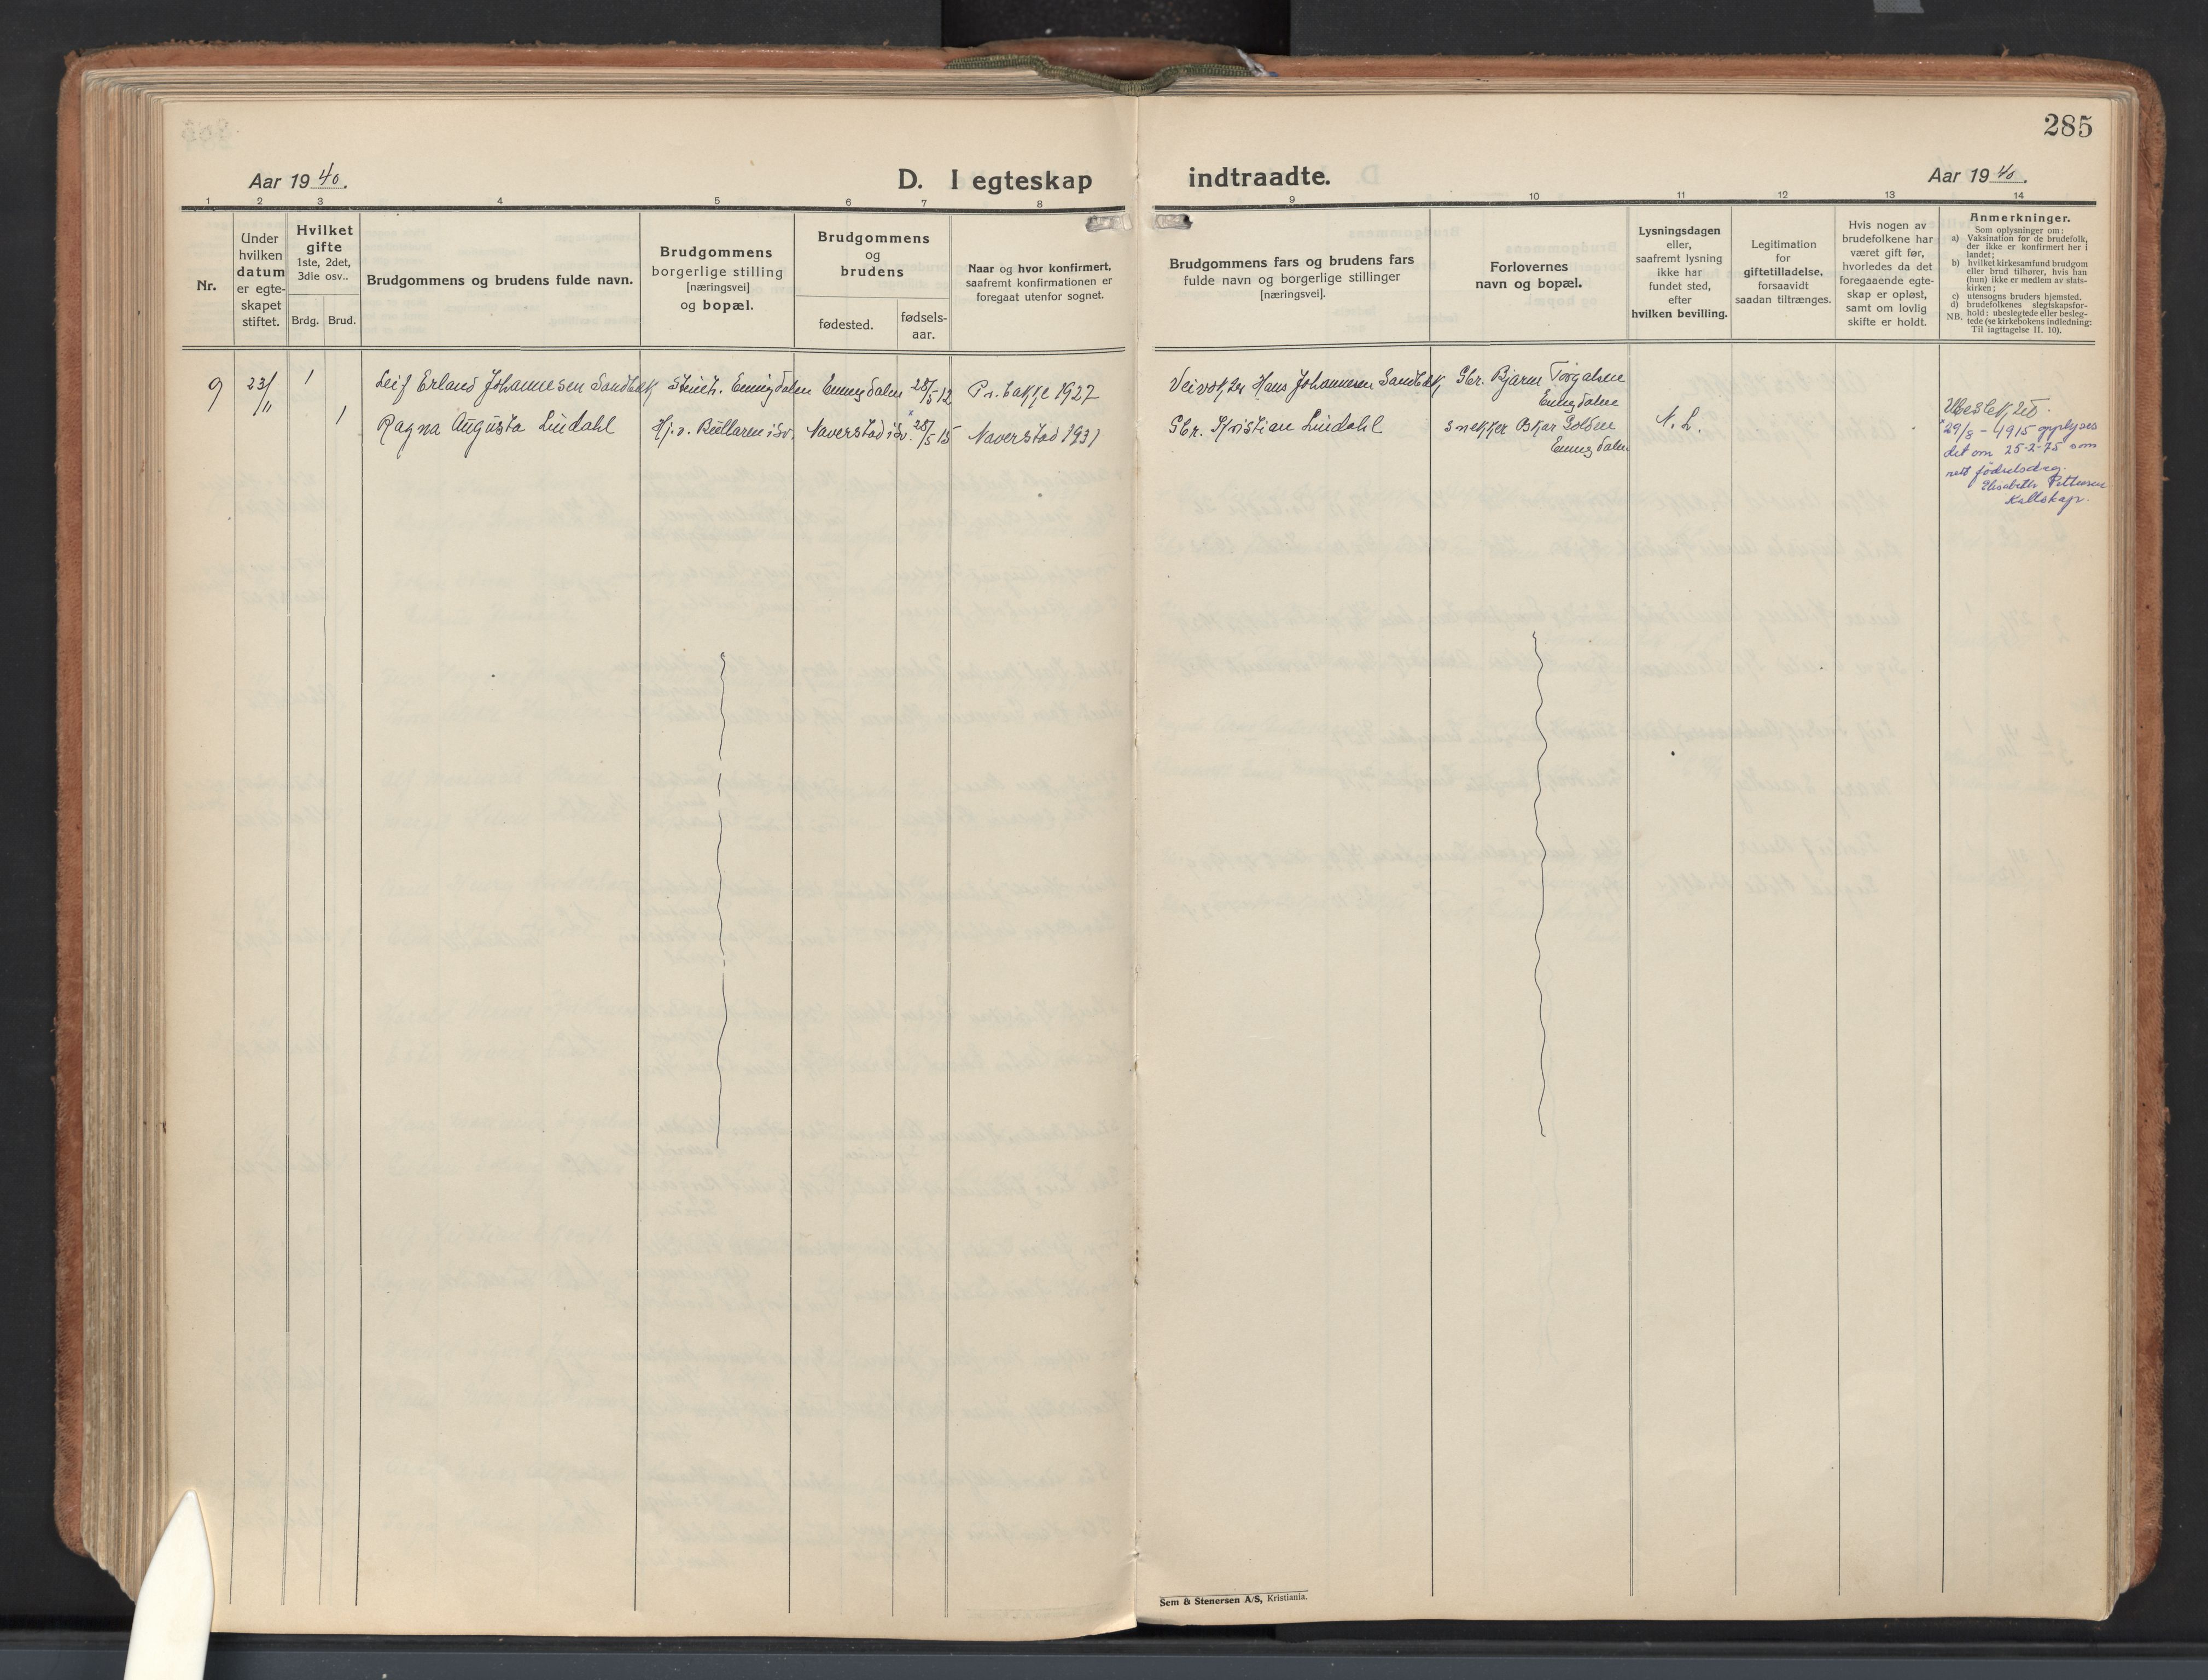 285
Aar 1940.
D. I egteskap
indtraadte.
Aar 1940.
1 2 3 4 5 6 7 8
9 10 11 12 13 14
Nr.
Under hvilken datum er egte-skapet stiftet.
Hvilket gifte
1ste, 2det, 3die osv..
Brdg. Brud.
Brudgommens og brudens fulde navn.
Brudgommens
borgerlige stilling
[næringsvei]
og bopæl.
Brudgommens
og
brudens
fødested.
fødsels-
aar.
Naar og hvor konfirmert,
saafremt konfirmationen er
foregaat utenfor sognet.
Brudgommens fars og brudens fars
fulde navn og borgerlige stillinger
[næringsvei].
Forlovernes
navn og bopæl.
Lysningsdagen
eller,
saafremt lysning
ikke har
fundet sted,
efter
hvilken bevilling.
Legitimation
for
giftetilladelse,
forsaavidt
saadan tiltrænges.
Hvis nogen av
brudefolkene har
været gift før,
hvorledes da det
foregaaende egte-
skap er opløst,
samt om lovlig
skifte er holdt.
Anmerkninger.
Som oplysninger om:
a) Vaksination for de brudefolk,
der ikke er konfirmert her i
landet;
b) hvilket kirkesamfund brudgom
eller brud tilhører, hvis han
(hun) ikke er medlem av stats-
kirken;
c) utensogns bruders hjemsted.
d) brudefolkenes slegtskapsfor-
hold: ubeslegtede eller besleg-
NB. tede (se kirkebokens indledning:
Til iagttagelse II. 10).
9 23/11 1 Leif Erland Johannesen Sandbæk Stenh. Enningdalen Enningdalen 28/5-12 Pr.bakke 1927 Veivokter Hans Johannesen Sandbæk Gbr. Bjarne Torgalsen
Enningdalen
1 Ragna Augusta Lindahl Hj.v. Bullaren i Sv. Naverstad i Sv. x 28/5 15 Naverstad 1931 Gbr. Kristian Lindahl snekker Oskar
Enningdalen
N. L.
Ubeslektet.
x 29/8-1915 opplyses
det om 25-2-75 som
rett fødselsdag.
Elisabeth Pettersen
Kallskap.
Sem & Stenersen A/S, Kristiania.